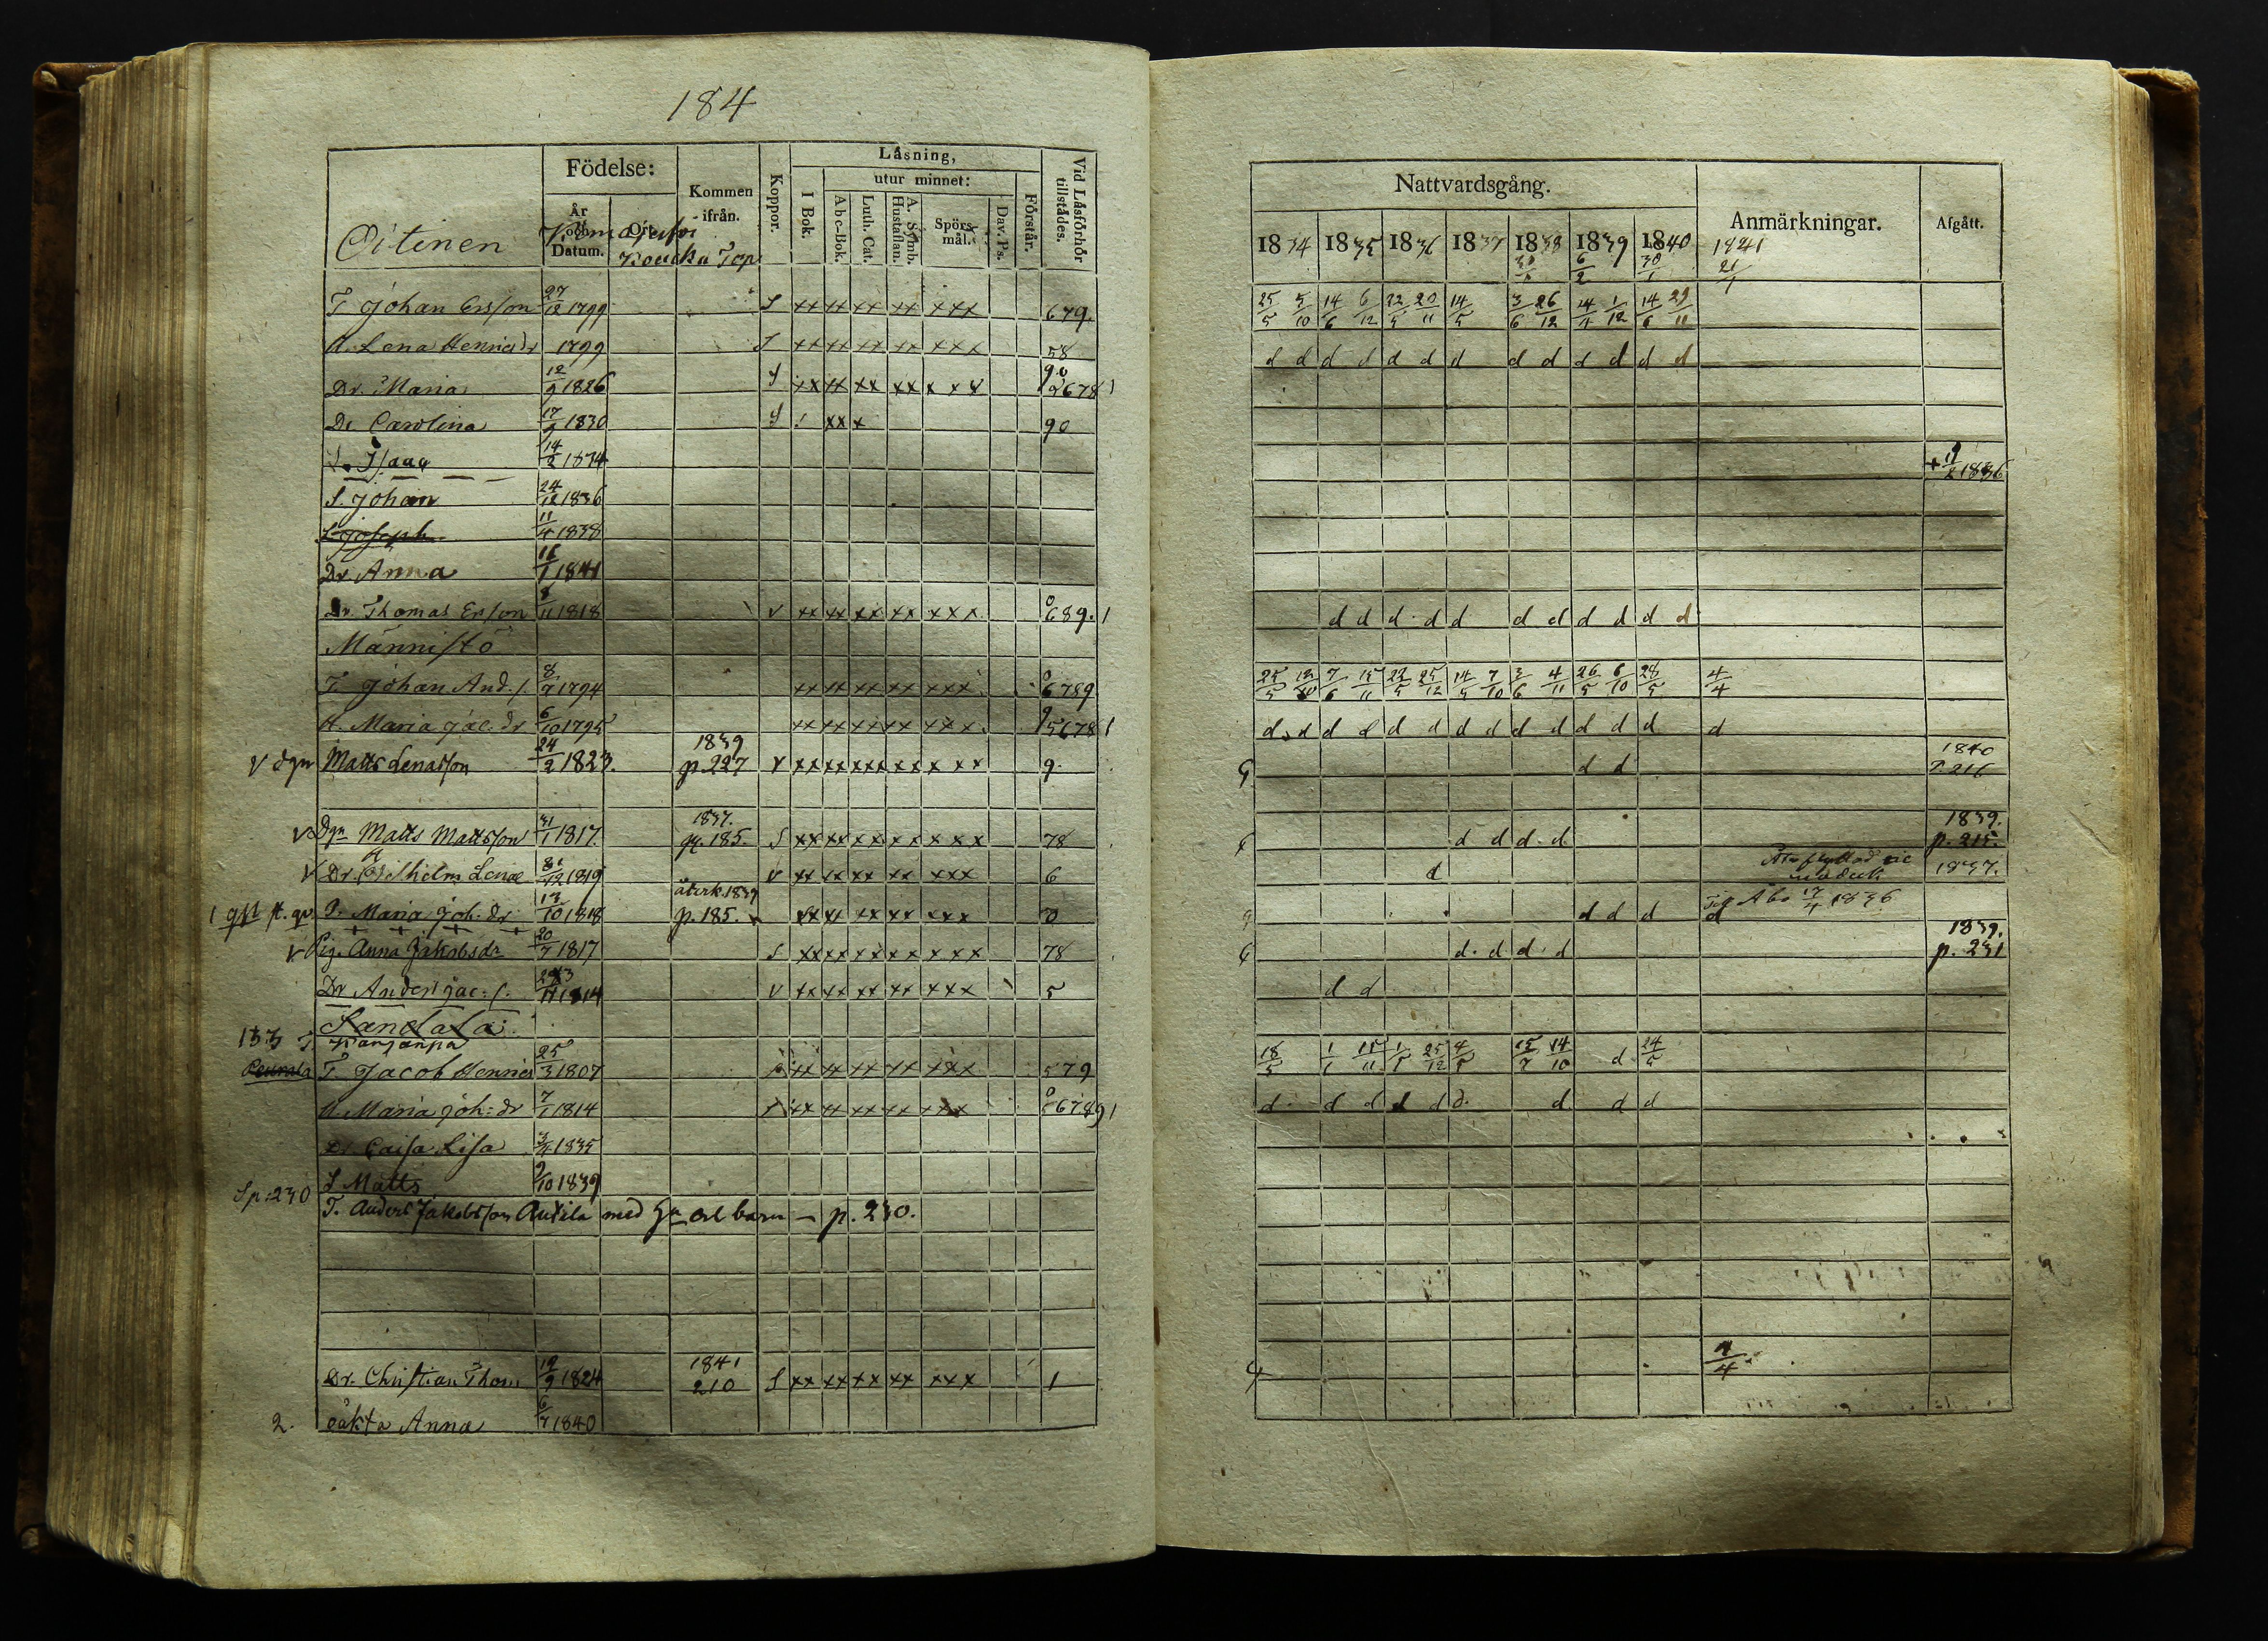 184
Födelse:
Kommen ifrån.
Koppor.
Låsning,
utur minnet:
I Bok.
Abc-Bok.
Luth. Cat.
A. Symb. Hustaflan.
Spörsmål.
Dav. Ps.
Förstår.
Vid Låsförhör tillstådes.
Oitinen
År och Datum.
Ort.
T Johan Ersson 27/12 1799 S xx xx xx xx xxx 679.
H. Lena Henricsdr 1799 S xx xx xx xx xxx 58
Dr. Maria 12/9 1826 S xx xx xx xx x x x 90 2678 1
Dr Carolina 17/9 1830 S xx x 90
S. Isaac 14/2 1834
S. Johan 24/12 1836
S Joseph 11/4 1838
Dr Anna 16/1 1841
Dr. Thomas Ersson 8/11 1818 v xx xx xx xx xxx 0 689. 1
Männistö
T Johan And. s. 8/7 1794 xx xx xx xx xxx 0 6789
H. Maria Jac. dr 6/10 1795 xx xx xx xx xxx 9 5678 1
v dgn Matts Lenasson 24/2 1823. 1839 p. 227 v xx xx xx xx x xx 9.
v Dgn Matts Mattsson 31/1 1817. 1837. p. 185. S xx xx xx x x x x x 78
v Dr. Wilhelm Lenæ 1819 v xx xx xx xx xxx 6
P. Maria Joh. dr 13/10 1818 återk. 1839 p. 185. xx xx xx xx xxx 0
v Pig. Anna Jakobsdr 20/7 1817 S xx xx xx xx x xx 78
Dr Anders Jac. s. 1814 v xx xx xx xx xxx 5
Sandala
Peurala T. Jacob Henrics 25/3 1807 xx xx xx xx xxx 579
H. Maria Joh: dr 7/1 1814 xx xx xx xx xxx 0 6789 1
Dr Caisa Lisa 3/4 1835
Sp: 230 S Matts 9/10 1839
T. Anders Jakobsson Autila med Hu och barn — p. 230.
Dr. Christian Thom 19/9 1824 1841 210 S xx xx xx xx xxx 1
2. oäkta Anna 6/7 1840
Nattvardsgång.
Anmärkningar.
Afgått.
1834 1835 1836 1837 1838 1839 1840 1841
30/1 6/2 30/1 21/1
25/5 5/10 14/6 6/12 22/5 20/11 14/5 3/6 26/12 14/4 1/12 14/6 29/11
d d d d d d d d d d d d d
+ 1836
d d d d d d d d d d d
25/5 13/10 7/6 15/11 22/5 25/12 14/5 7/10 3/6 4/11 26/5 6/10 28/5 4/4
d d d d d d d d d d d d d d
d d 1840 p. 216
d d d d 1839. p. 215.
d 1837.
d d d d Åbo 17/4 1836
d d d d 1839. p. 231
d d
18/5 1/1 15/11 1/5 25/12 4/5 15/7 14/10 d 24/5
d d d d d d d d d
4/4